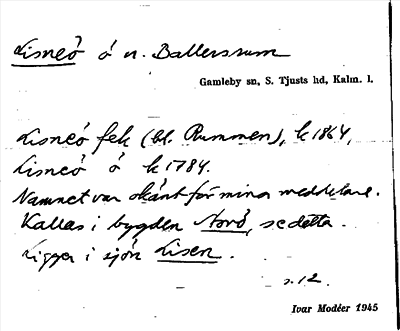 Lisneö ö n. Ballersrum
Gamleby sn, S. Tjusts hd, Kalm. l.
Lisneö fck (bl. Rummen), k 1864,
Lisneö ö k 1784.
Namnet var okänt för mina meddelare.
Kallas i bygden Norö, se detta.
Ligger i sjön Lisen.
s. 12.
Ivar Modéer 1945